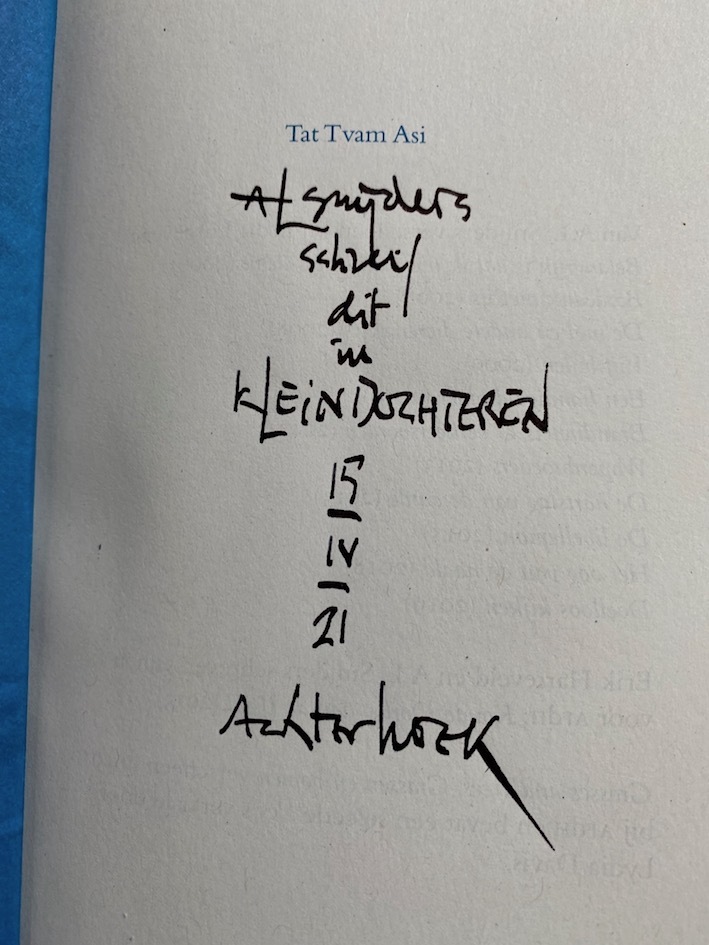 Tat Tvam Asi
AL snijders
schreef
dit
in
KLEINDOCHTEREN
15
IV
21
Achterhoek